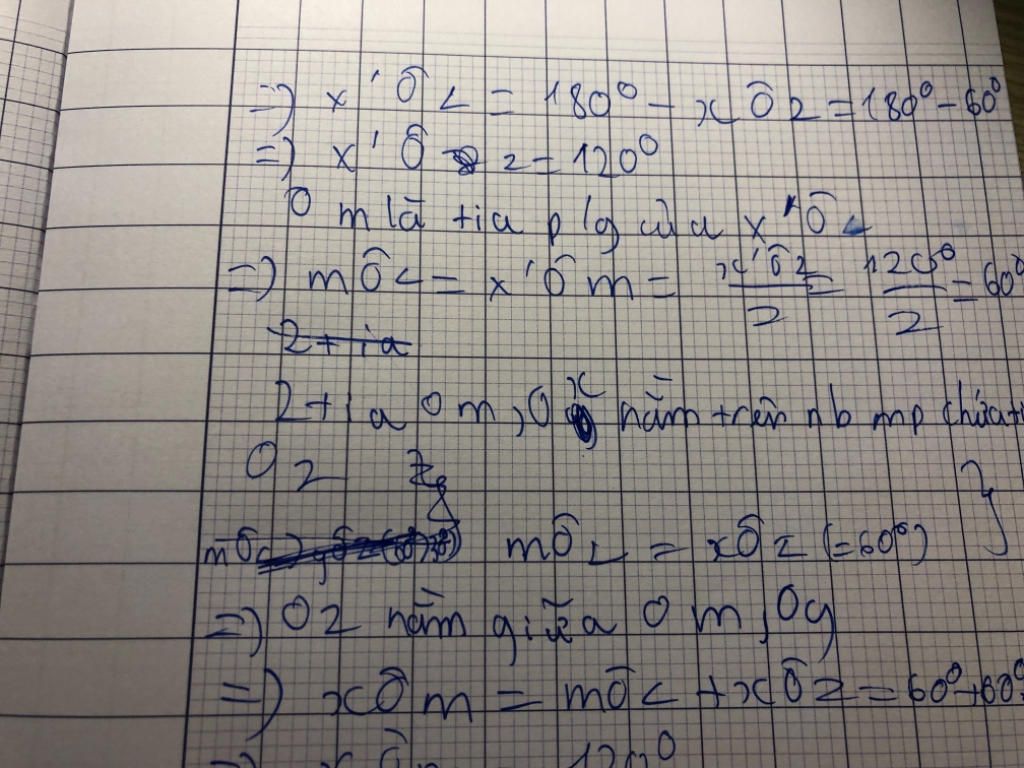 => x'Ôz = 180⁰ - xÔz = 180⁰ - 60⁰
=> x'Ôz = 120⁰
Om là tia p/g của x'Ôz
=> mÔz = x'Ôm = x'Ôz/2 = 120⁰/2 = 60⁰
2 tia
2 tia Om, Ox nằm trên nb mp chứa
Oz
mÔz = xÔz (=60⁰) }
=> Oz nằm giữa Om, Oy
=> xÔm = mÔz + xÔz = 60⁰+60⁰
120⁰